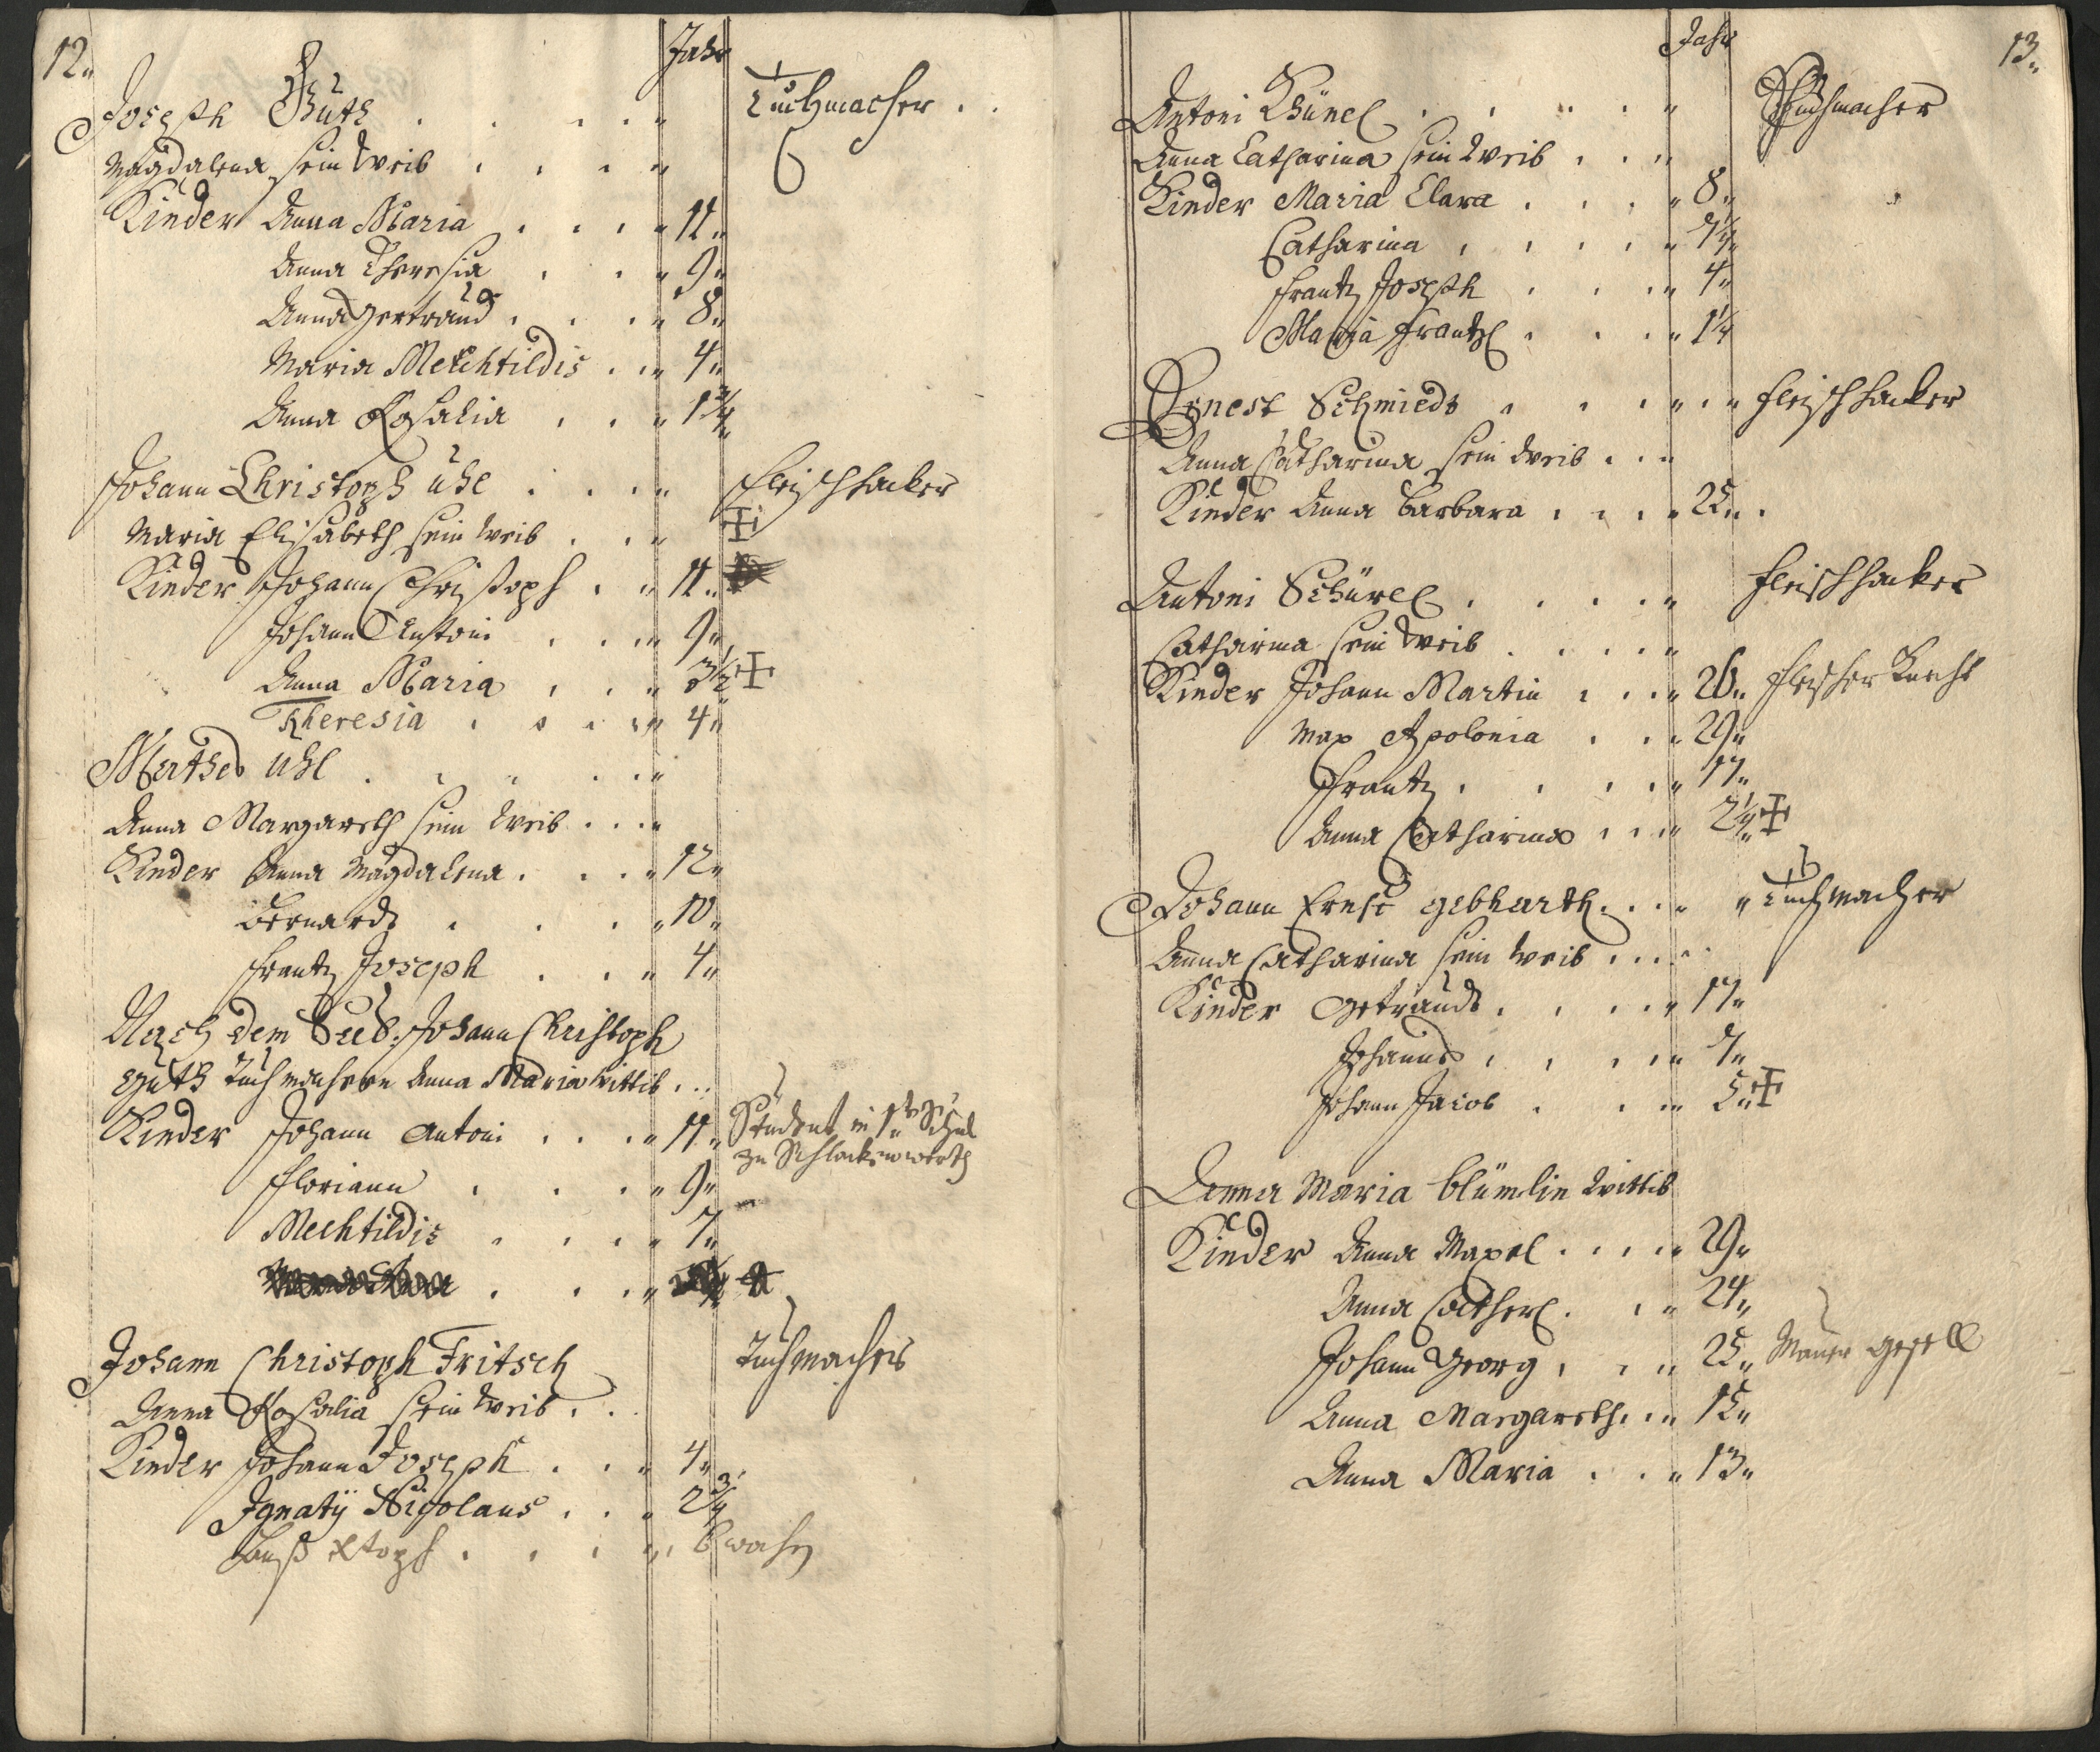 12.
Jahr
Joseph Güth . . . . " Tuchmacher . .
Magdalena sein Weib . . . . "
Kinder Anna Maria . . . . " 11"
Anna Theresia . . . " 9"
Anna Gertraud . . . . " 8"
Maria Mechtildis . . " 4"
Anna Rosalia . . . " 1 3/4"
Johann Christoph Uhl . . . . " Fleischhacker
Maria Elisabeth sein Weib . . . " ‡
Kinder Johann Christoph . . " 11"
Johann Antoni . . . " 9"
Anna Maria . . . " 3 1/2 ‡
Theresia . . . . " 4"
Mathes Uhl . . . . . "
Anna Margareth sein Weib . . . "
Kinder Anna Magdalena . . . . " 12"
Bernardt . . . . " 10"
Frantz Joseph . . . " 4"
Nach dem Seel: Johann Christoph
Güth Tuchmachern Anna Maria Wittib . . .
Kinder Johann Antoni . . . . " 11" Student in 1ter Schul
zu Schlackenwerth
Floriann . . . . " 9"
Mechtildis . . . . " 7"
Johann Christoph Fritsch Tuchmacher
Anna Rosalia sein Weib . .
Kinder Johann Joseph . . . " 4"
Ignatÿ Nicolaus . . . " 2 3/4
Xtoph . . . . "
13.
Jahr
Antoni Khünel . . . . . " Tuchmacher
Anna Catharina sein Weib . . . "
Kinder Maria Clara . . . . " 8"
Catharina . . . . . "
Frantz Joseph . . . . " 4"
Maria Frantzl . . . . " 1 1/4
Ernest Schmiedt . . . . " . " Fleischhacker
Anna Catharina sein Weib . . "
Kinder Anna Barbara . . . . " 25" .
Antoni Schürel . . . . . " Fleischhacker
Catharina sein Weib . . . . . "
Kinder Johann Martin . . . . " 26" Fleischer Knecht
Max Apolonia . . . " 29"
Frantz . . . . . " 17"
Anna Catharina . . . " ‡
Johann Ernst Gebharth . . . . " " Tuchmacher
Anna Catharina sein Weib . . . . "
Kinder Getraudt . . . . . " 17"
Johannes . . . . . "
Johann Jacob . . . " 5" ‡
Anna Maria Blümlin Wittib
Kinder Anna Maxel . . . . " 29"
Anna Catherl . . . " 24"
Johann Georg . . . " 25" Maurer Gesell
Anna Margareth . . . " 15"
Anna Maria . . . " 13"